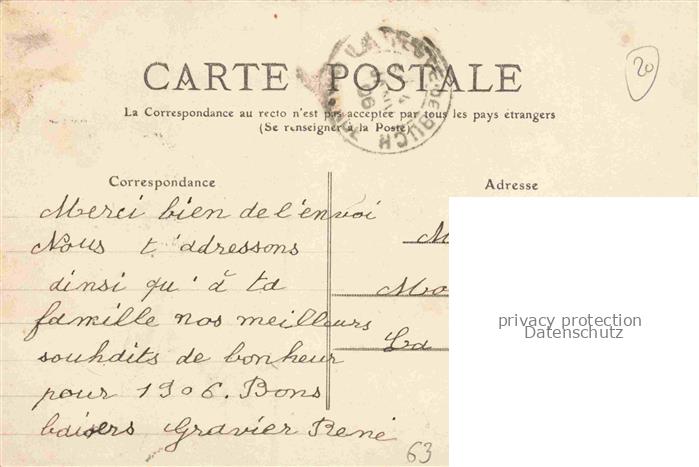 CARTE POSTALE
20
La Correspondance au recto n'est pas acceptée par tous les pays étrangers
(Se renseigner à la Poste)
LA TESTE-DE-BUCH
Correspondance
Adresse
Merci bien de l'envoi
Nous t'adressons
ainsi qu'à ta
famille nos meilleurs
souhaits de bonheur
pour 1906. Bons
baisers Gravier René
M
Mo
La
privacy protection
Datenschutz
63